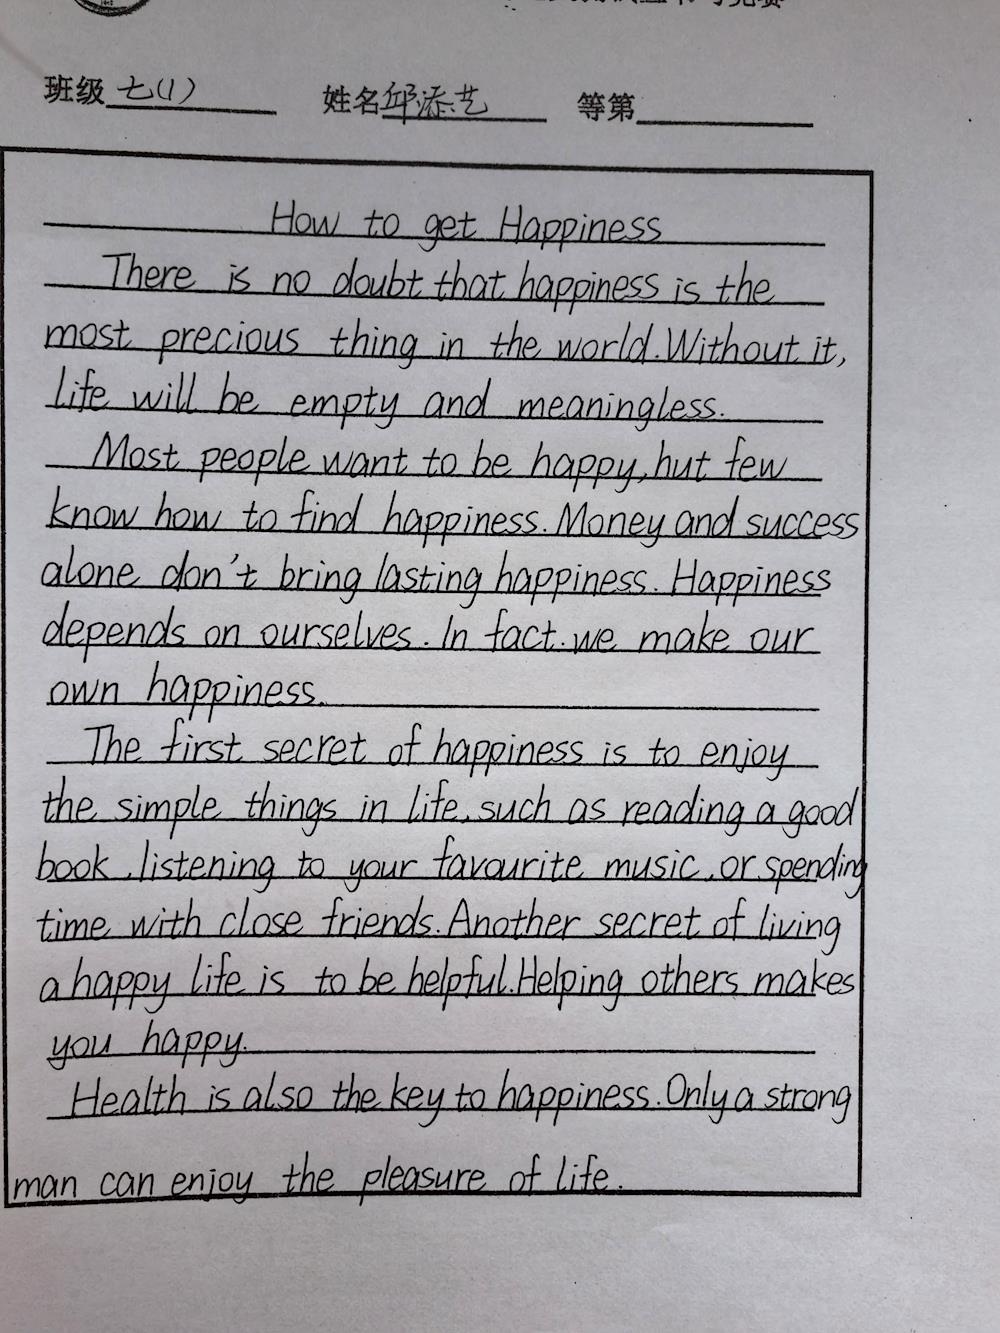 班级 七(1) 姓名 邱添艺 等第
How to get Happiness
There is no doubt that happiness is the
most precious thing in the world. Without it,
life will be empty and meaningless.
Most people want to be happy, but few
know how to find happiness. Money and success
alone don't bring lasting happiness. Happiness
depends on ourselves. In fact. we make our
own happiness.
The first secret of happiness is to enjoy
the simple things in life, such as reading a good
book, listening to your favourite music, or spending
time with close friends. Another secret of living
a happy life is to be helpful. Helping others makes
you happy.
Health is also the key to happiness. Only a strong
man can enjoy the pleasure of life.